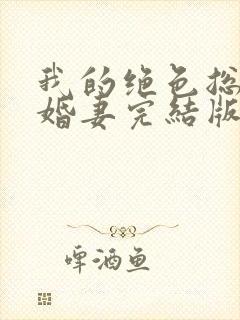 我的绝色总
婚妻完结版
啤酒鱼